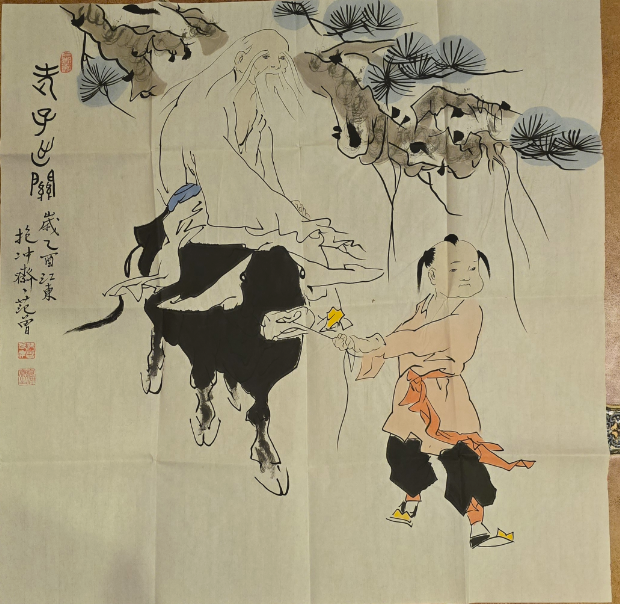 老子出關
歲乙酉江東
抱冲齋主范曾